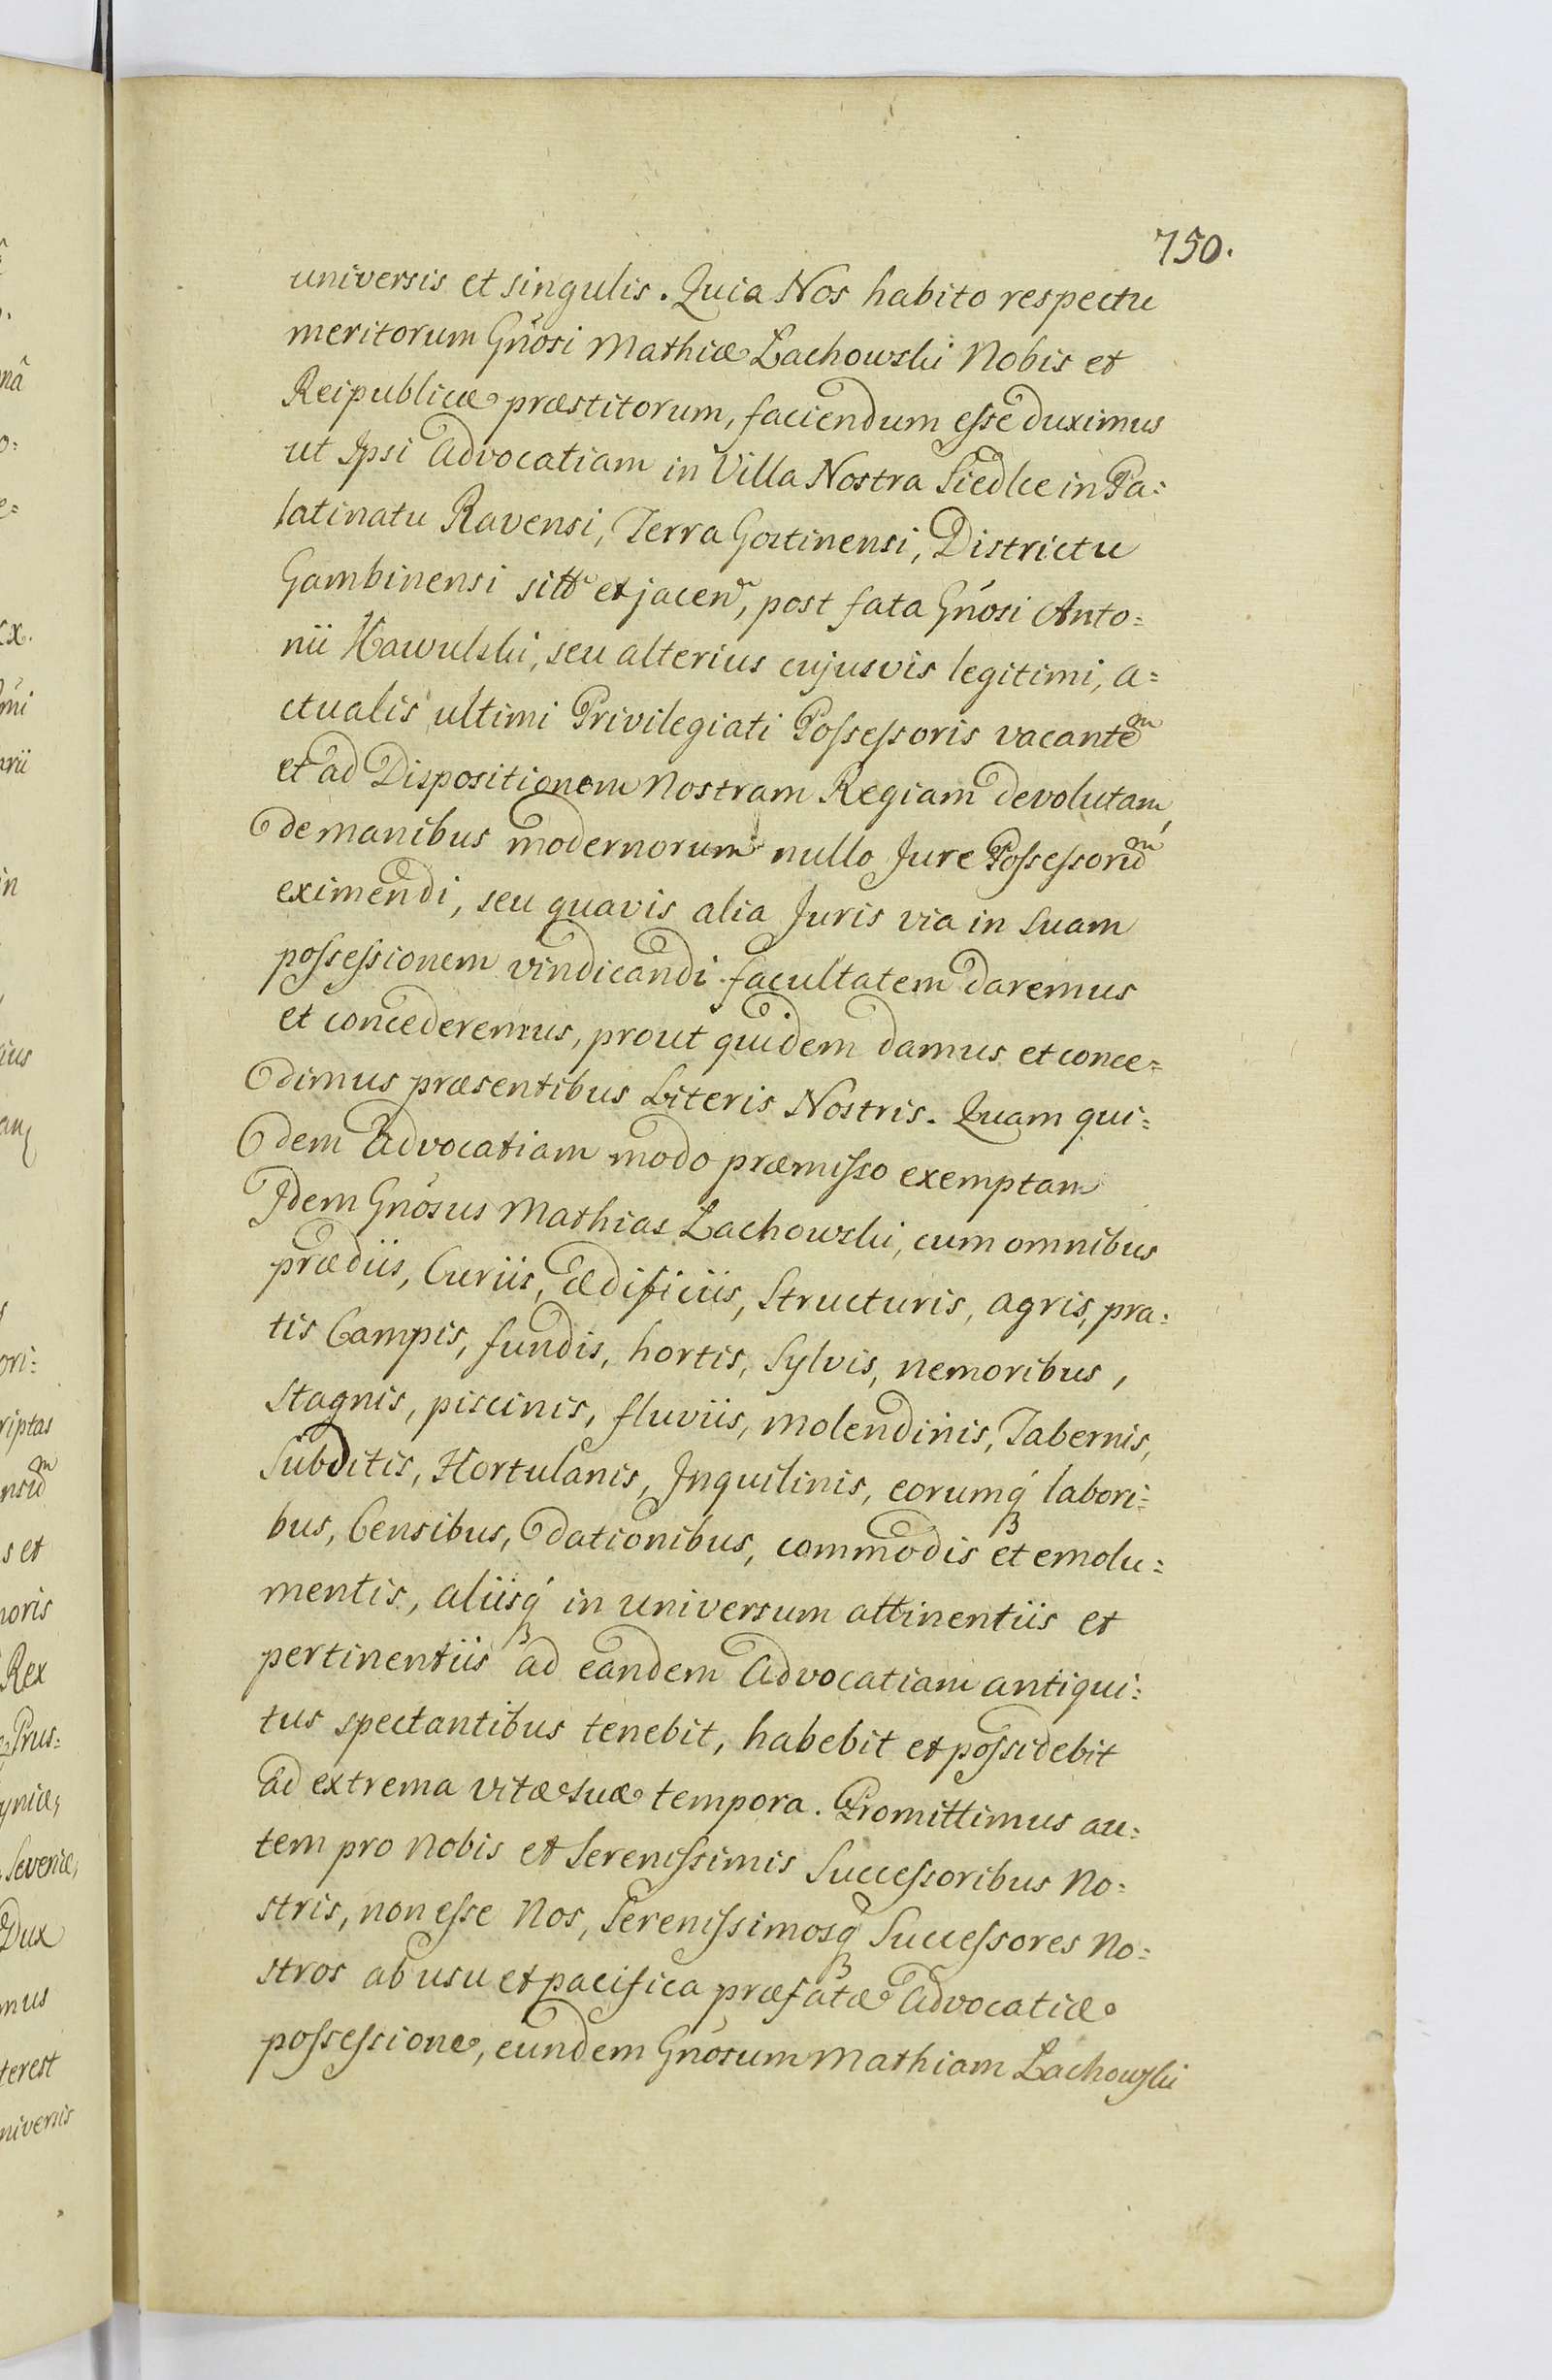 750.
universis et singulis. Quia Nos habito respectu
meritorum Gnosi Mathiæ Lachowski Nobis et
Reipublicæ præstitorum, faciendum esse duximus
ut Ipsi Advocatiam in Villa Nostra Siedlce in Pa:
latinatu Ravensi, Terra Gostinensi, Districtu
Gambinensi sitt et jacen, post fata Gnosi Anto:
nii Kawulski, seu alterius cujusvis legitimi, a=
ctualis ultimi Privilegiati Possessoris vacantem
et ad Dispositionem Nostram Regiam devolutam,
de manibus modernorum nullo Jure Possessorum
eximendi, seu quavis alia Juris via in Suam
possessionem vindicandi facultatem daremus
et concederemus, prout quidem damus et conce=
dimus præsentibus Literis Nostris. Quam qui:
dem Advocatiam modo præmisso exemptam
Idem Gnosus Mathias Lachowski, cum omnibus
prædiis, Curiis, ædificiis, Structuris, agris, pra:
tis Campis, fundis, hortis, Sylvis, nemoribus,
stagnis, piscinis, fluviis, molendinis, Tabernis,
Subditis, Hortulanis, Inquilinis, eorumq́ labori:
bus, Censibus, dationibus, commodis et emolu:
mentis, aliisq́ in universum attinentiis et
pertinentiis ad eandem Advocatiam antiqui:
tus spectantibus tenebit, habebit et possidebit
ad extrema vitæ suæ tempora. Promittimus au:
tem pro Nobis et Serenissimis Successoribus No:
stris, non esse Nos, Serenissimosq́ Successores No:
stros ab usu et pacifica præfatæ Advocatiæ
possessione, eundem Gnosum Mathiam Lachowski